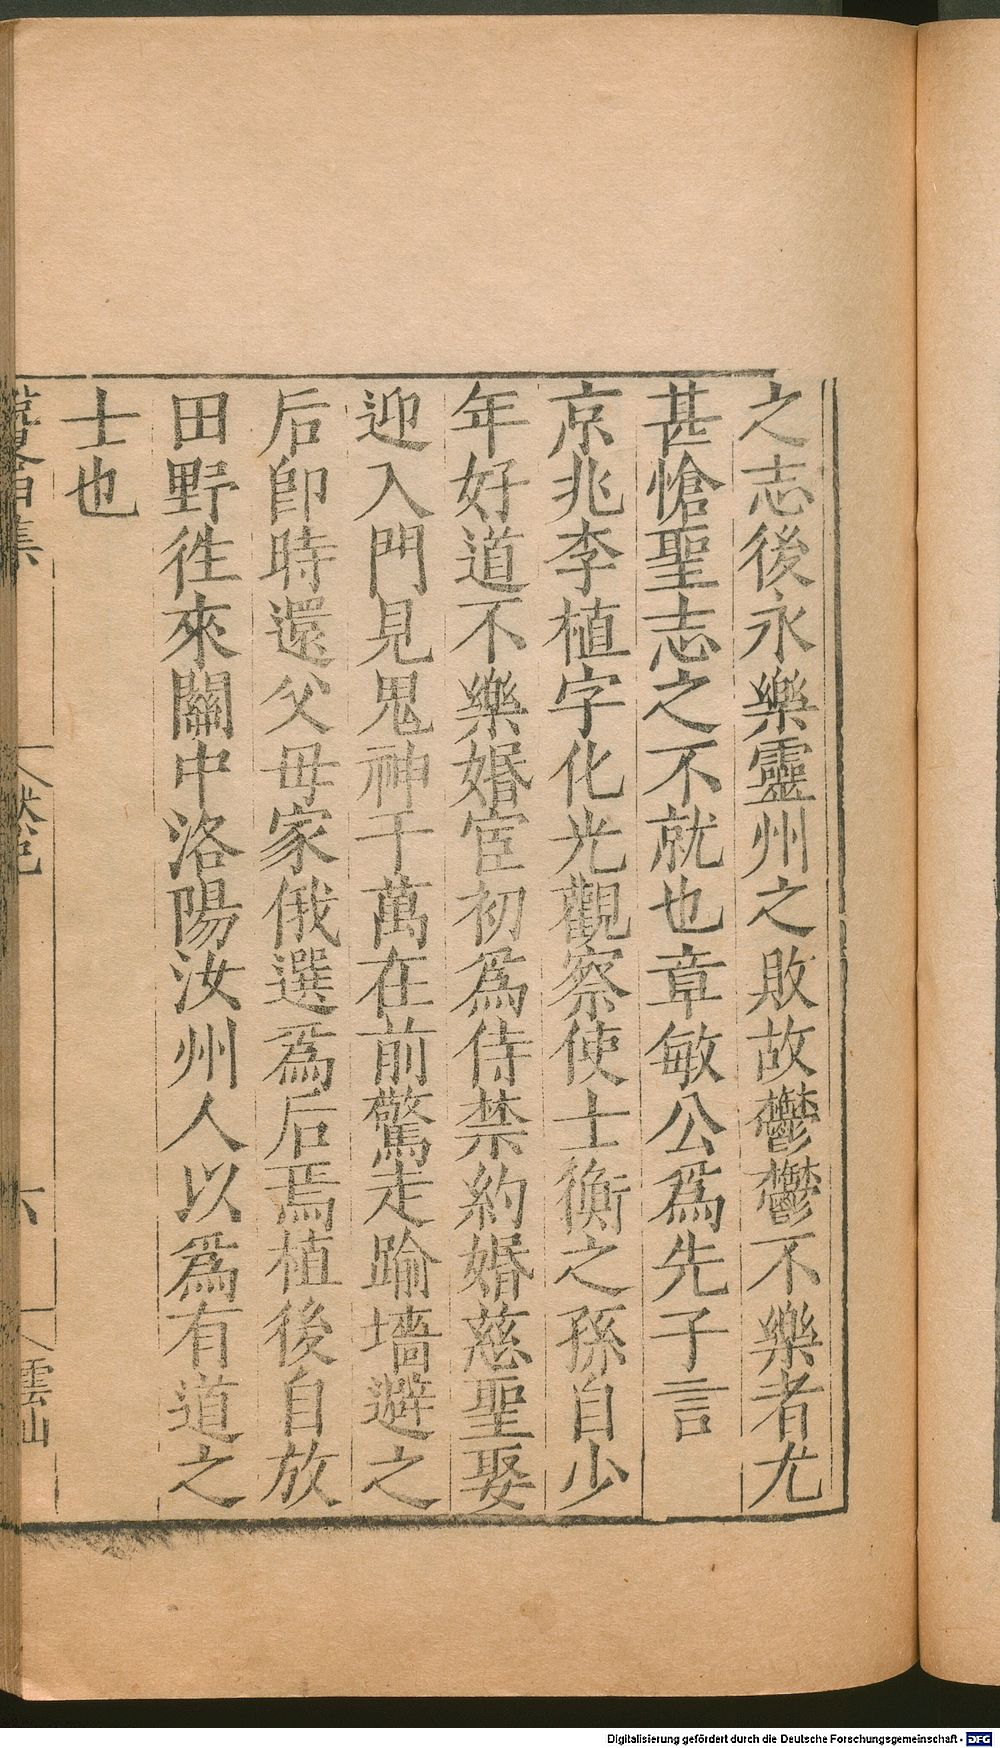 之志後永樂靈州之敗故鬱鬱不樂者尤
甚愴聖志之不就也章敏公爲先子言
京兆李植字化光觀察使士衡之孫自少
年好道不樂婚宦初爲侍禁約婚慈聖娶
迎入門見鬼神千萬在前驚走踰墻避之
后卽時還父母家俄選爲后焉植後自放
田野徃來關中洛陽汝州人以爲有道之
士也
集
六
雲山
Digitalisierung gefördert durch die Deutsche Forschungsgemeinschaft - DFG